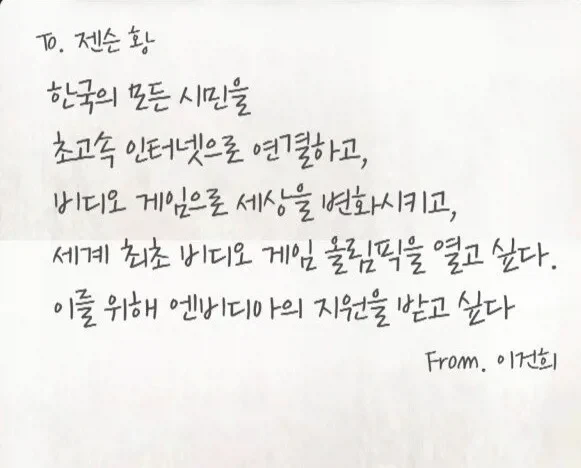 To. 젠슨 황
한국의 모든 시민을
초고속 인터넷으로 연결하고,
비디오 게임으로 세상을 변화시키고,
세계 최초 비디오 게임 올림픽을 열고 싶다.
이를 위해 엔비디아의 지원을 받고 싶다
From. 이건희